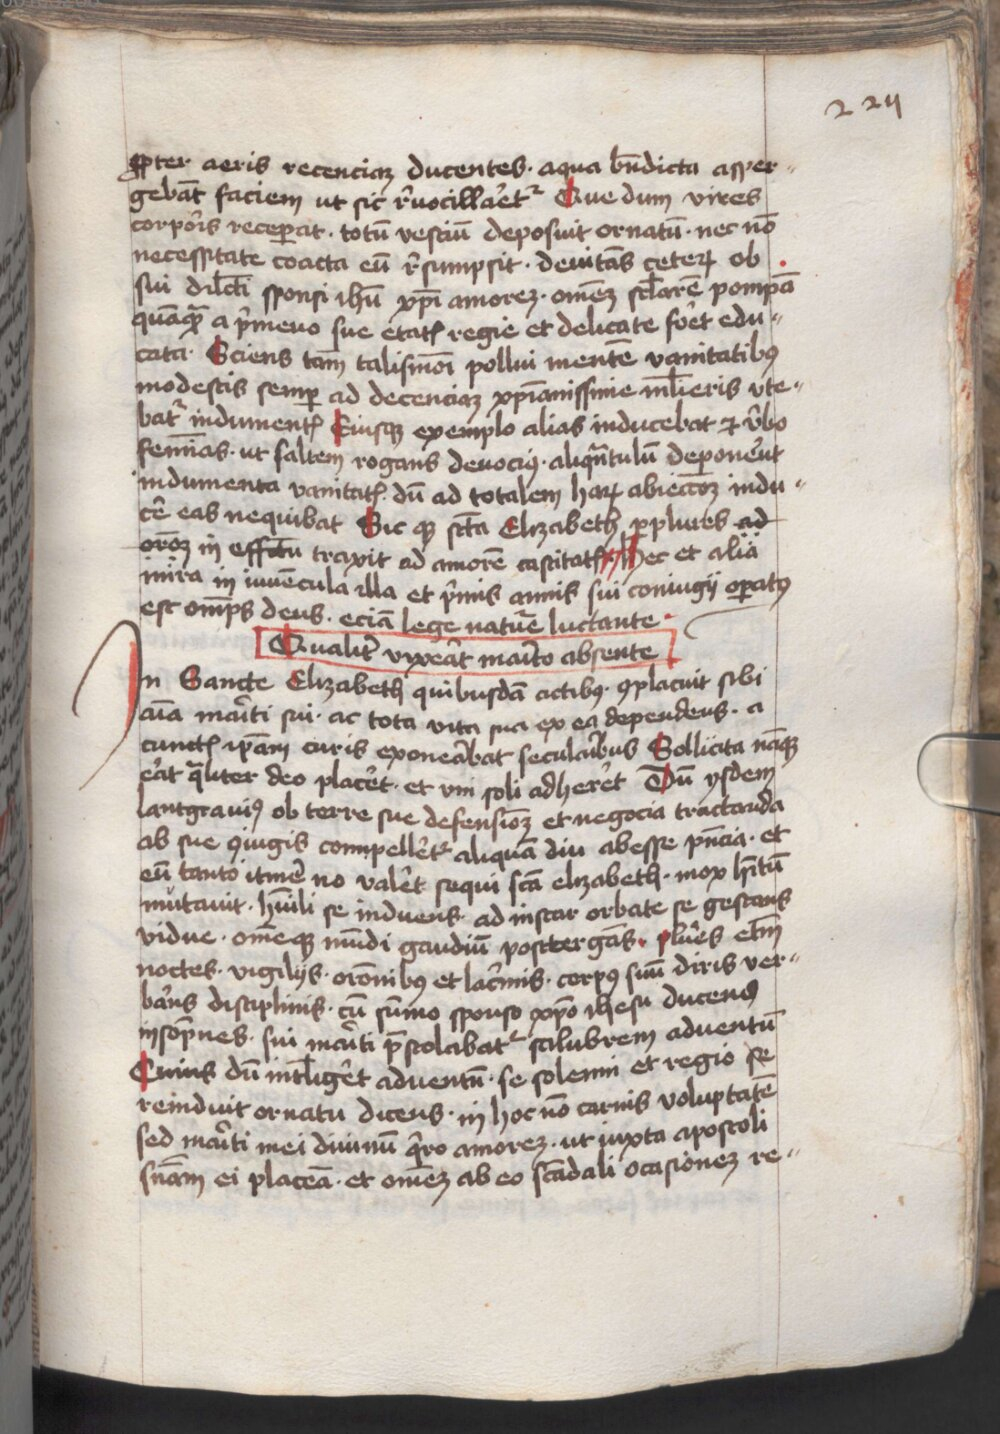 224
ꝓpter aeris recenciaꝫ ducentes · aqua bn̄dicta asper⸗
gebāt faciem ut sic r̉uocillar̉et᷑ Que dum vires
corpor̉is recepͣat · totū vestiū deposuit ornatū · nec nō
necessitate coacta eū r̉sumpsit · deuitās ceteꝝ ob
sui dil̄cti sponsi ihū xp̄i amoreꝫ · om̄eꝫ sc̄larē pompā
quāqꝫ a p̉meuo sue etatꝭ regie et delicate fōet edu⸗
cata · Sciens tam̄ talismōi pollui mentē vanitatibꝰ
modestis semꝑ ad decenciaꝫ xp̄ianissime ml̄ieris vte⸗
bat᷑ indumentꝭ Eiusqꝫ exemplo alias inducebat ⁊ v̉bo
femīas · ut saltem rogans deuociꝰ · aliqn̄tulū deponēnt
indumenta vanitatꝭ dū ad totalem haꝝ abiecc̄oꝫ indu⸗
cē eas nequibat Sic qꝫ sc̄ta Elizabeth ꝑplures ad
orōꝫ in effc̄tū traxit ad amorē castitatꝭ Hec et alia
mira in iuuēcula illa et p̉mis annis sui coniugij oꝑatꝰ
est om̄ps deus · eciā lege natur̄e luctante ·
Qualit̉ vixeāt mar̉ito absente
In Sancte Elizabeth quibusdā actibꝰ · ꝯplacuit sibi
aīa mar̉iti sui · ac tota vita sua ex ea dependens · a
cunctꝭ ip̄am curis exoner̉abat secular̉ibus Sollicita nāqꝫ
er̉at qͣliter deo placēt · et vni soli adherēt Dū ysdem
lantgrauiꝰ ob terre sue defensioꝫ et negocia tractanda
ab sue ꝯiugis compellēt᷑ aliquā diu abesse pn̄cia · et
eū tanto itiner̄e no valēt sequi sc̄a elizabeth · mox hītū
mutauit · hūili se induens · ad instar orbate se gestans
vidue · om̄eqꝫ mūdi gaudiū posttergās · plur̉es etm̄
noctes · vigilijs · orōnibꝰ et lacr̉mis · corpꝰ suū diris ver⸗
bar̉ns disciplinis · cū sūmo sponso xp̄o ihesu ducens
insōpnes · sui mar̉iti p̄stolabat᷑ salubrem aduentū
Cuius dū intl̄ligēt aduentū · se solenni et regio se
reinduit ornatu dicens · in hoc nō carnis voluptatē
sed mar̉iti mei diuinū q̉ro amoreꝫ · ut iuxta apostoli
sn̄iam ei placeā · et om̄eꝫ ab eo scādali ocasioneꝫ re⸗